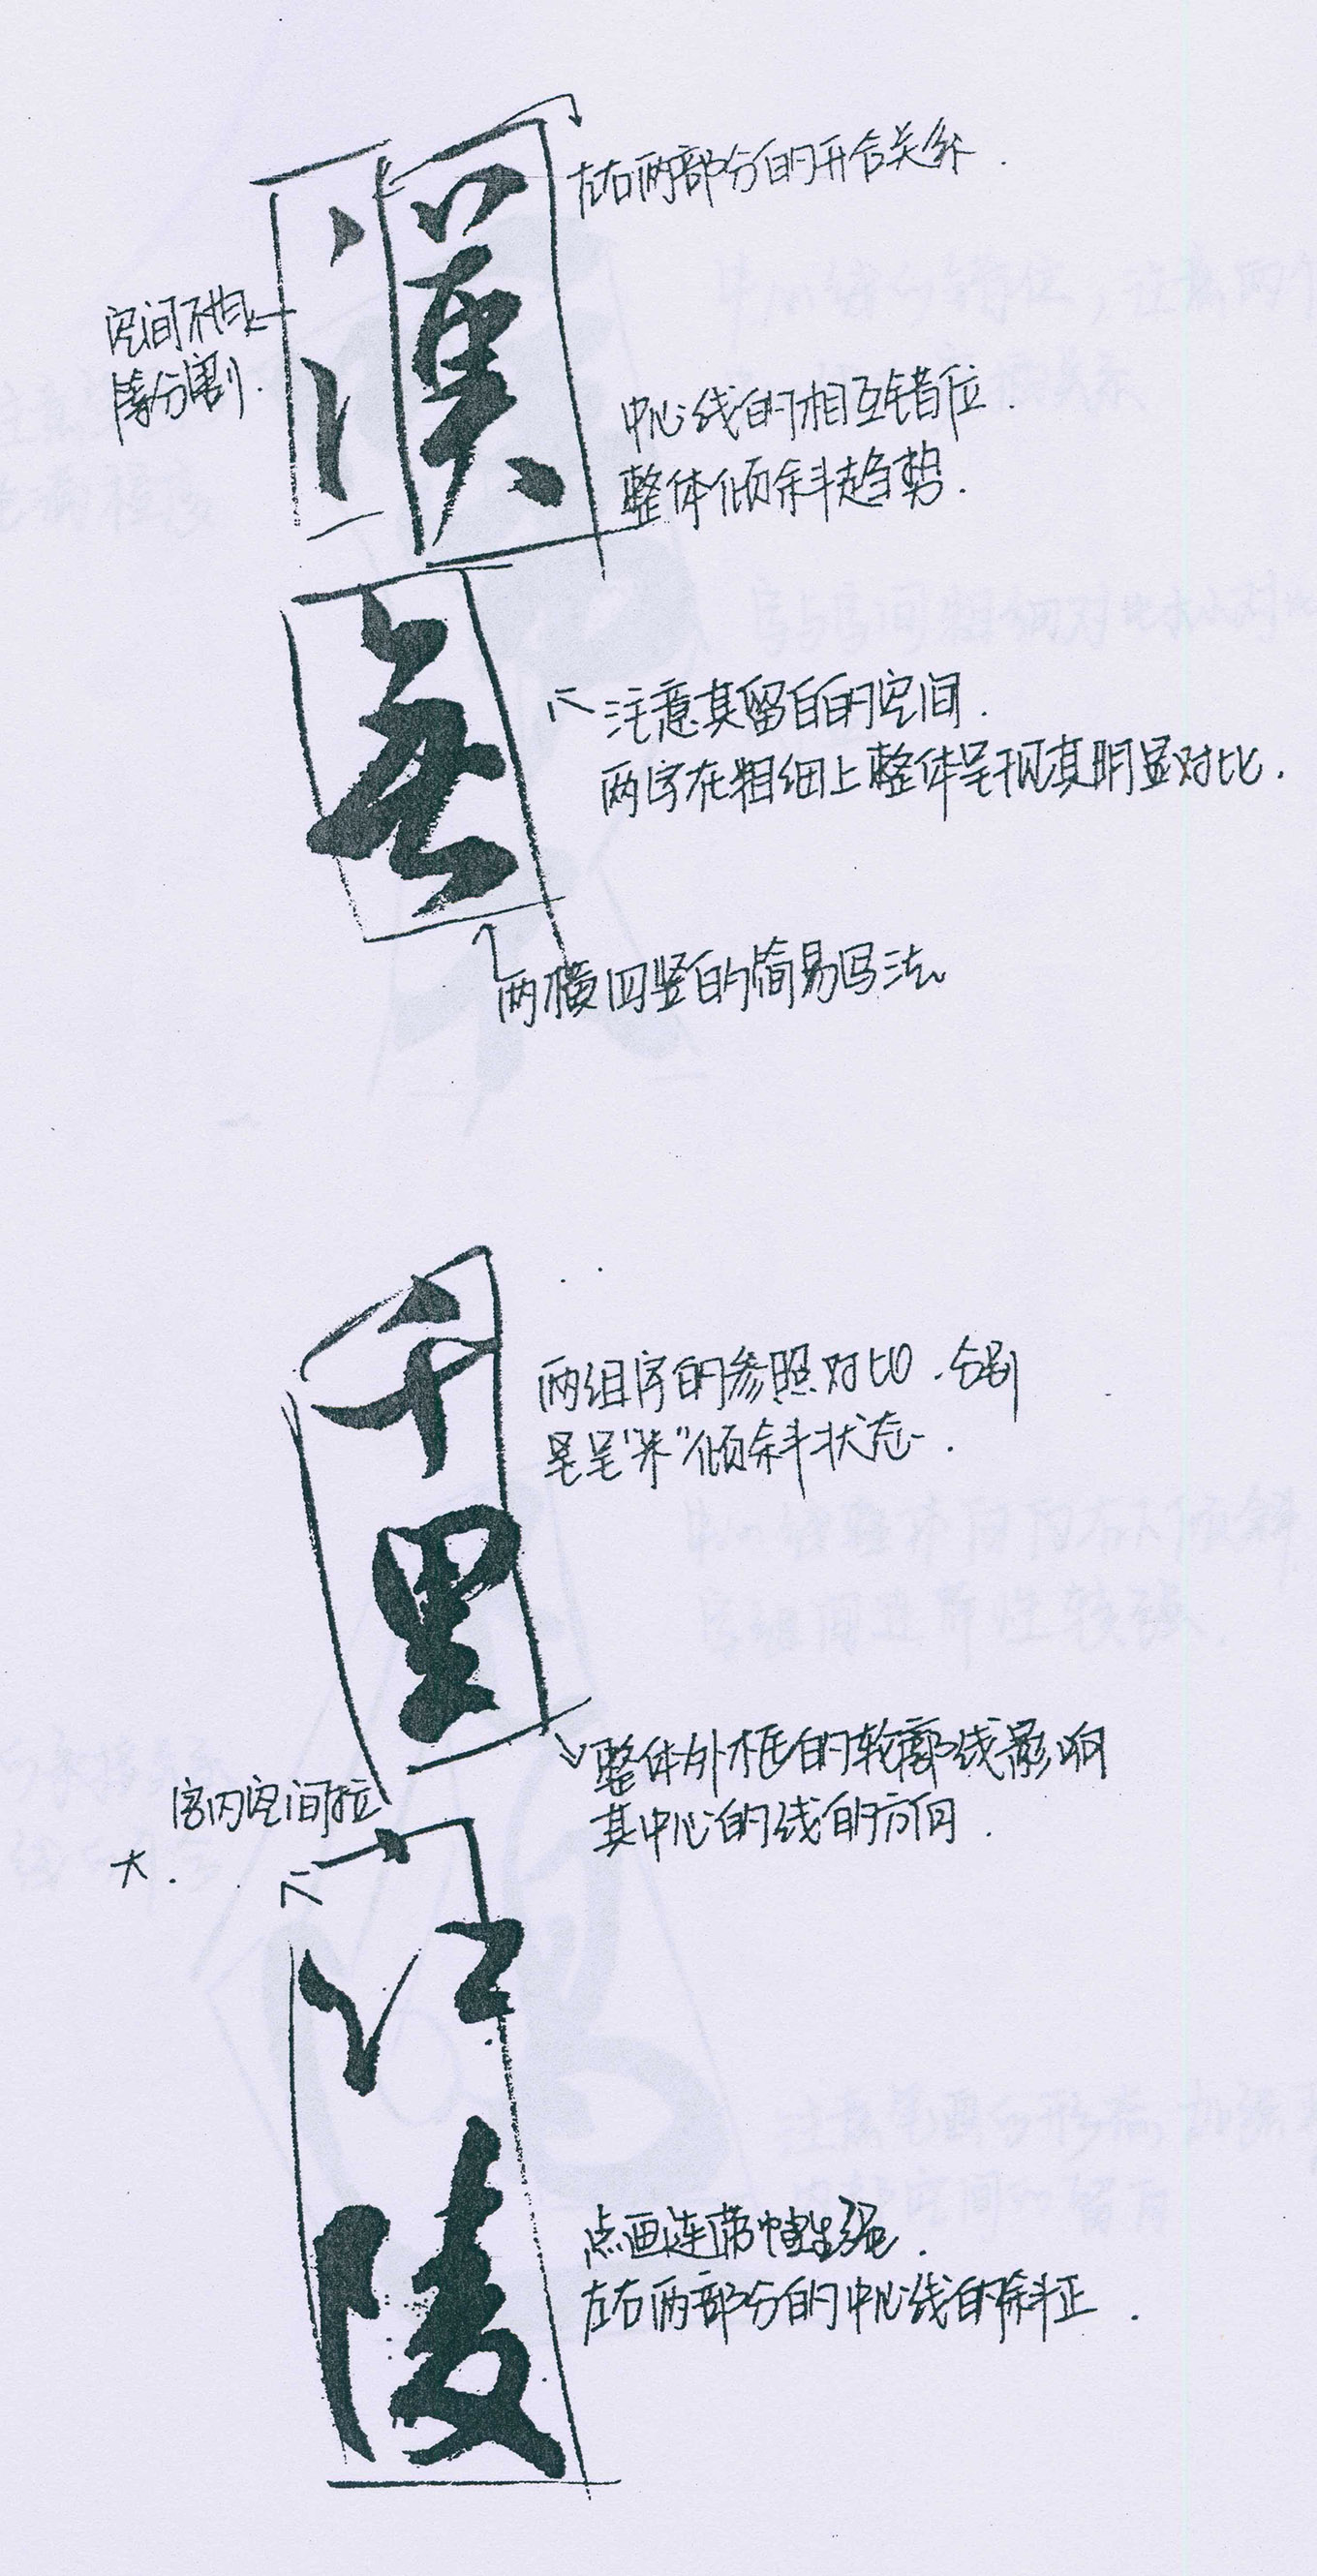 左右两部分的开合关系.
空间不相
等分割.
漢
中心线的相互错位.
整体倾斜趋势.
注意其留白的空间.
两字在粗细上整体呈现其明显对比.
两横四竖的简易写法
千
里
两组字的参照对比.分别
呈"米"倾斜状态.
整体外框的轮廓线影响
其中心的线的方向.
字内空间拉
大.
江
陵
点画连带
左右两部分的中心线的斜正.